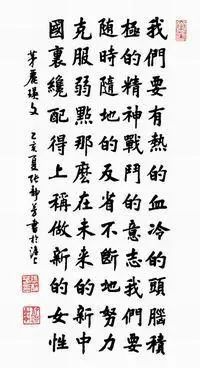 我們要有熱的血冷的頭腦積
極的精神戰鬥的意志我們要
隨時隨地的反省不斷地努力
克服弱點那麽在未來的新中
國裏纔配得上稱做新的女性
茅麗瑛文 乙亥夏